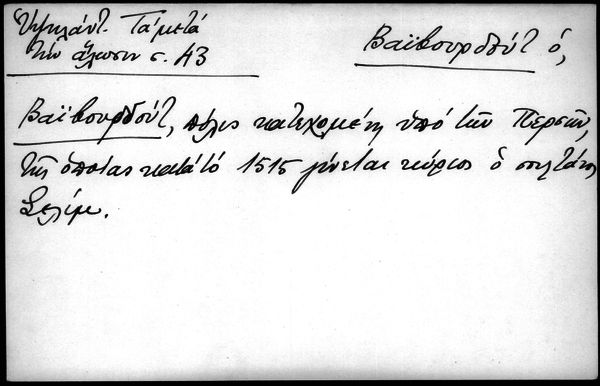 Ὑψηλάντ. Τά μετά
τήν ἅλωσιν σ. 43
Βαϊβουρδούτ ὁ,
Βαϊβουρδούτ, πόλις κατεχομένη ὑπό τῶν Περσῶν,
τῆς ὁποίας κατά τό 1515 γίνεται κύριος ὁ σουλτάνος
Σελίμ.